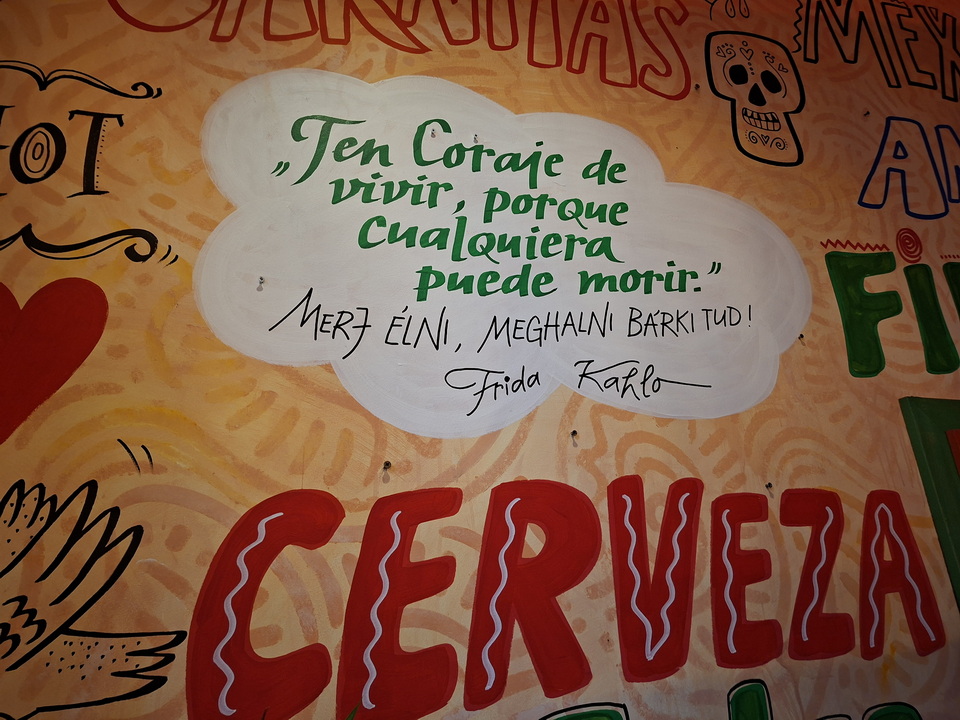 CARNITAS
MÉX
HOT
„Ten Coraje de
vivir, porque
cualquiera
puede morir.”
MERJ ÉLNI, MEGHALNI BÁRKI TUD!
Frida Kahlo
CERVEZA